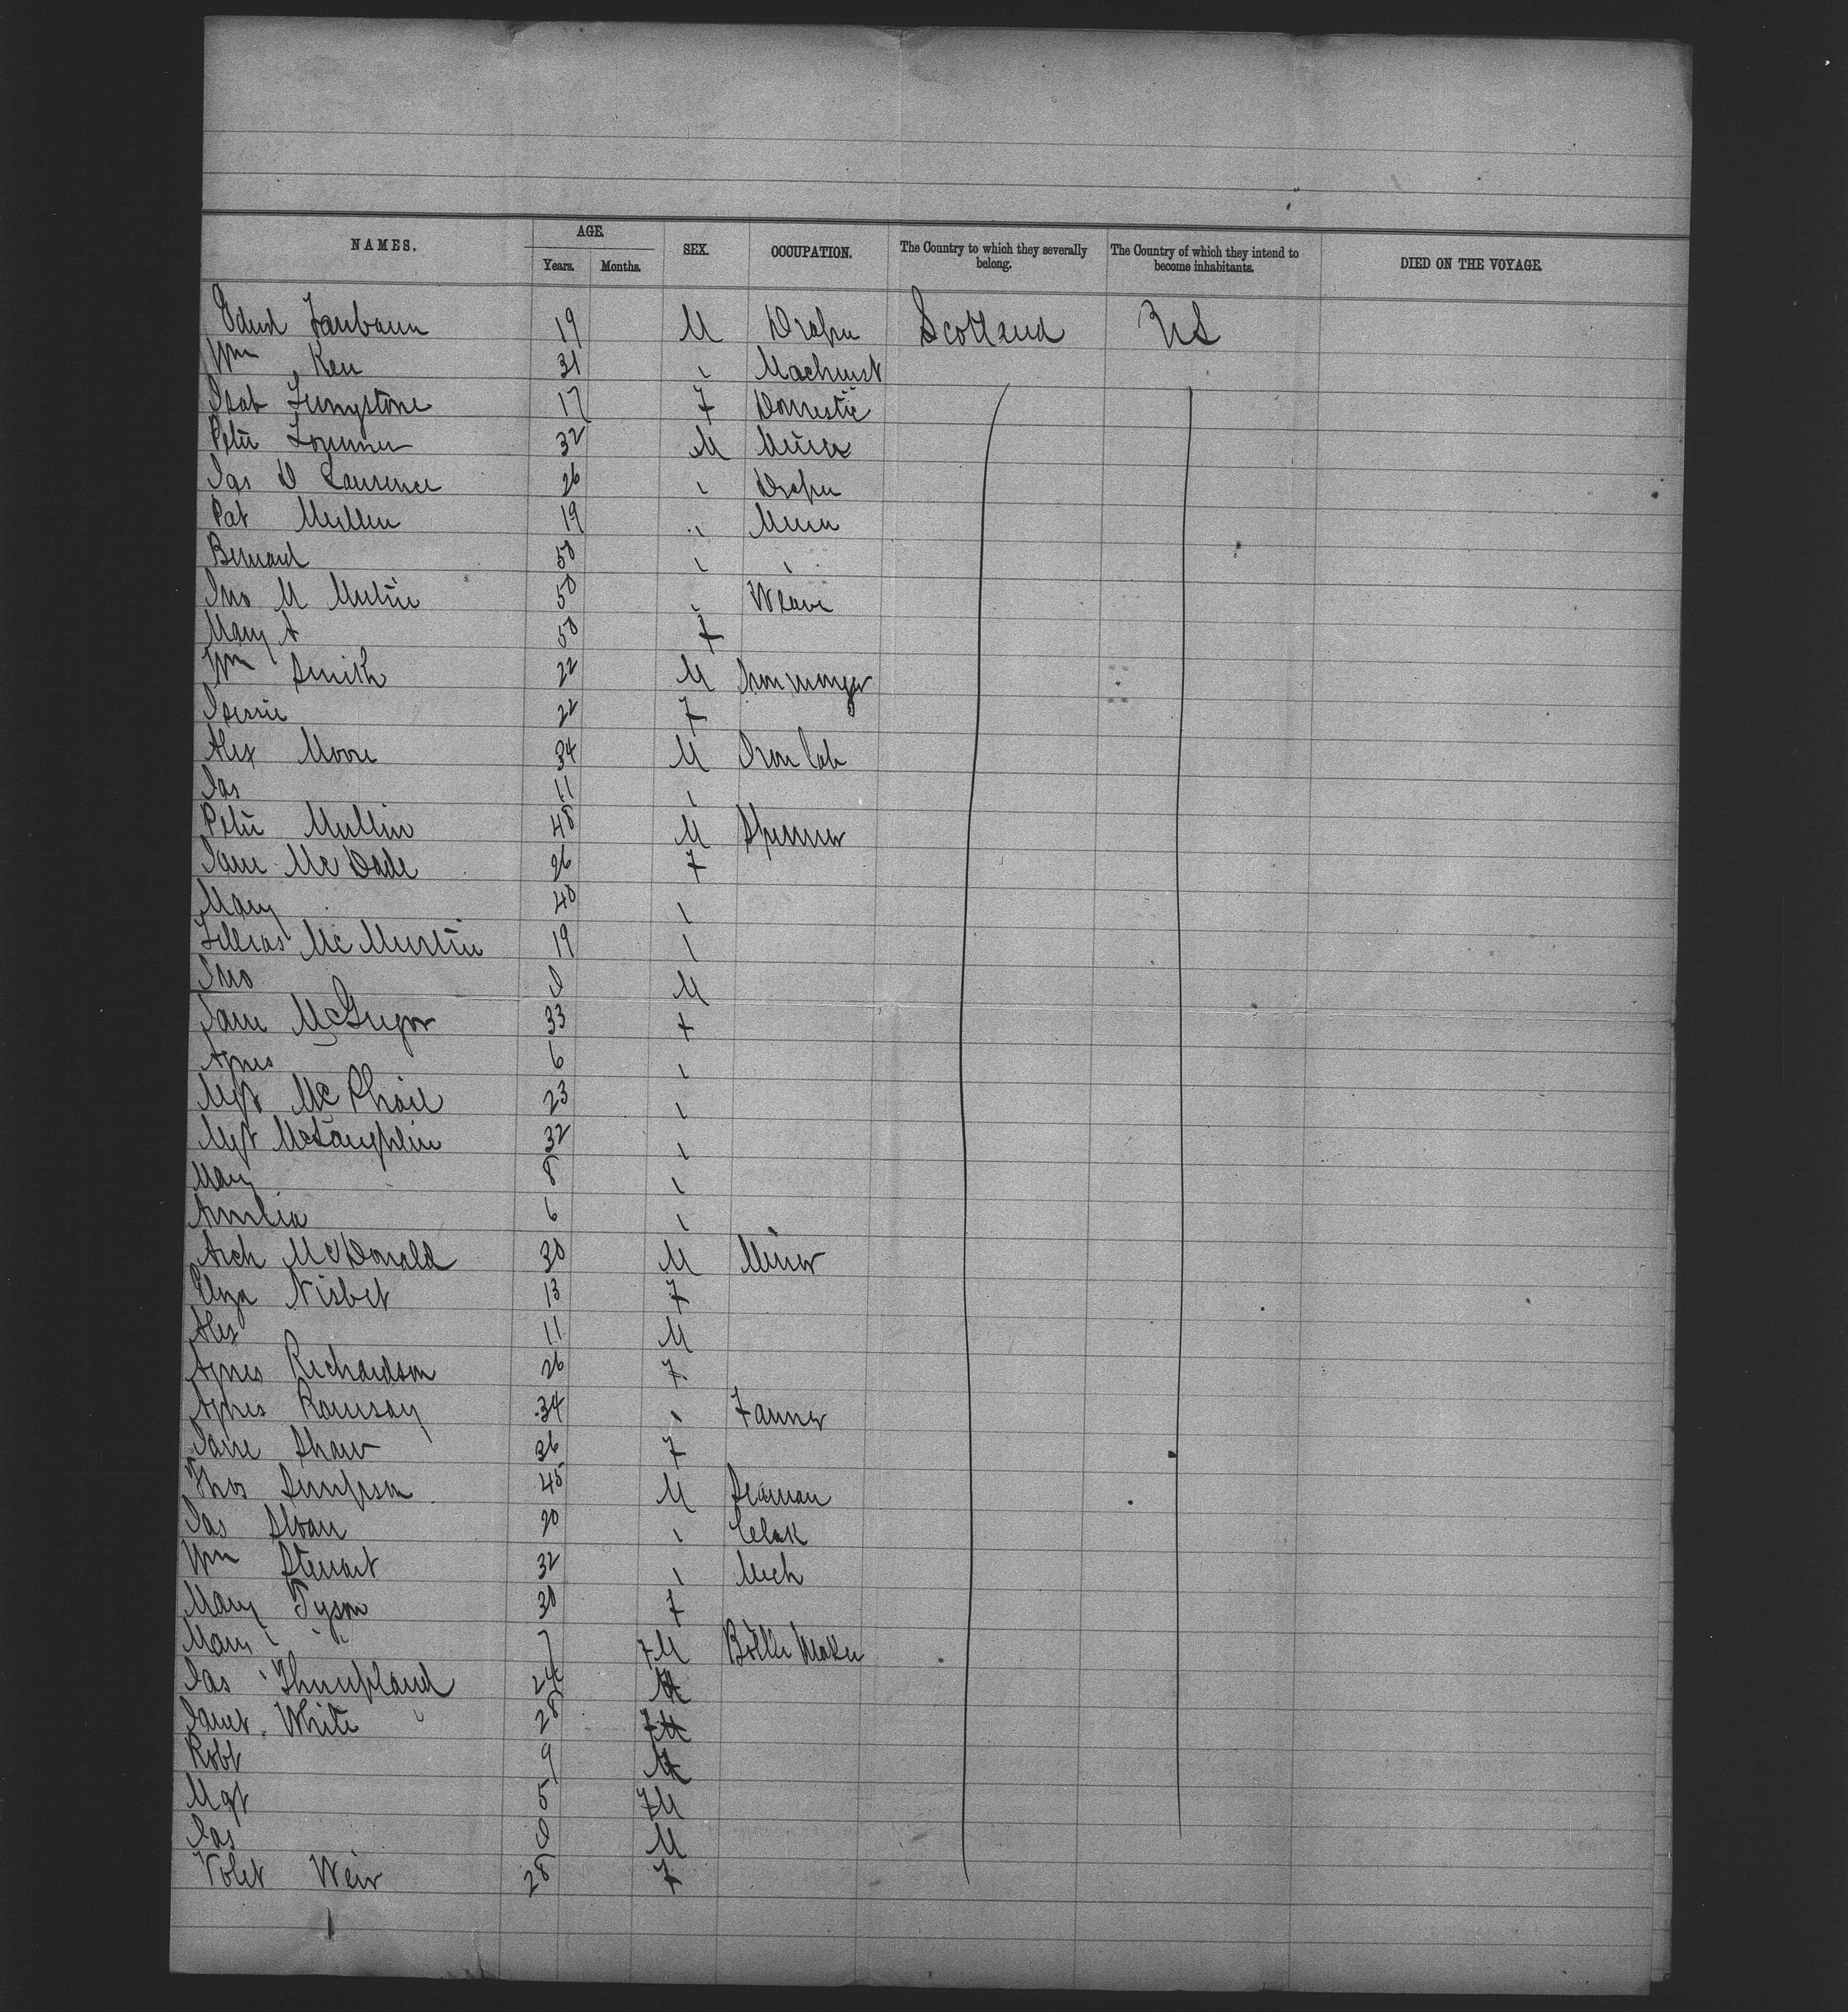 NAMES. AGE. SEX. OCCUPATION. The Country to which they severally belong. The Country of which they intend to become inhabitants. DIED ON THE VOYAGE.
Years. Months.
Edwd Fairbairn 19 M Draper Scotland US
Wm Kerr 31 " Machinist
Isab 17 F Domestic
Peter 32 M Miner
Jas D Laurence 26 " Draper
Pat Mullen 19 " Miner
Bernard 50 " "
Jno M 50 " Weaver
Mary A 50 F
Wm Smith 22 M Ironmonger
Jessie 22 F
Alex Moore 34 M Iron Lab
Jas 11 "
Peter Mullin 48 M Spinner
Jane McDade 26 F
Mary 40 "
Lillias McMurtrie 19 "
Jno 0 M
Jane McGregor 33 F
Agnes 6 "
Mgt McPhail 23 "
Mgt McLaughlin 32 "
Mary 8 "
Amelia 6 "
Arch McDonald 30 M Miner
Eliza Nisbet 13 F
Alex 11 M
Agnes Richardson 26 F
Agnes Ramsay 34 " Farmer
Jane Shaw 36 F
Thos Simpson 45 M Seaman
Jas Sloan 20 " Clerk
Wm Stewart 32 " Mech
Mary Tyson 30 F
Mary " 7 F M Bottle Maker
Jas 24 M
Janet White 28 F
Robt 9 M
Mgt 5 F M
Jas 0 M
Violet Weir 28 F